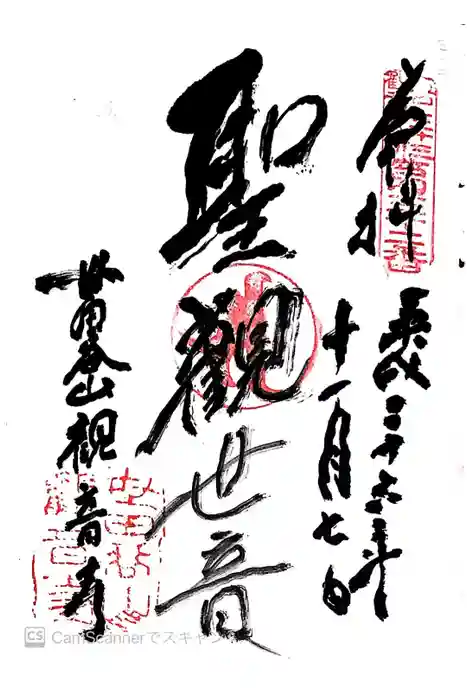 奉拝
平成二十六年
十一月七日
聖觀世音
世田谷山観音寺
CS CamScannerでスキャン